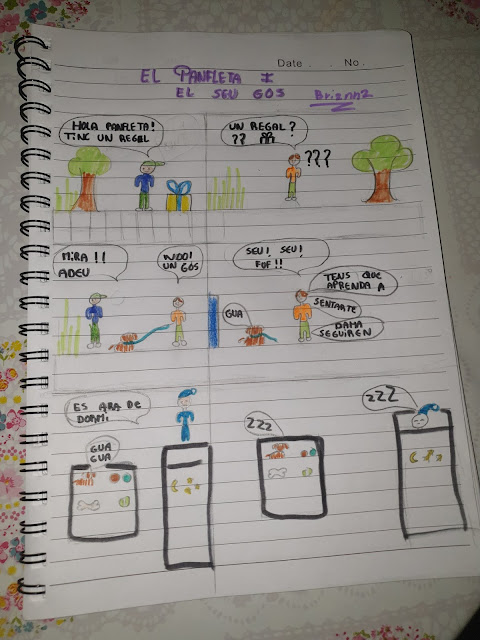 Date . . No.
EL PANFLETA I
EL SEU GOS Brizan2
HOLA PANFLETA!
TINC UN REGAL
UN REGAL?
??
???
MIRA !!
ADEU
NOO!
UN GOS
SEU! SEU!
FUF!!
TENS QUE
APRENDA A
SENTARTE
GUA
DAMA
SEGUIREN
ES ARA DE
DORMI
GUA
GUA
ZZZ
ZZZ